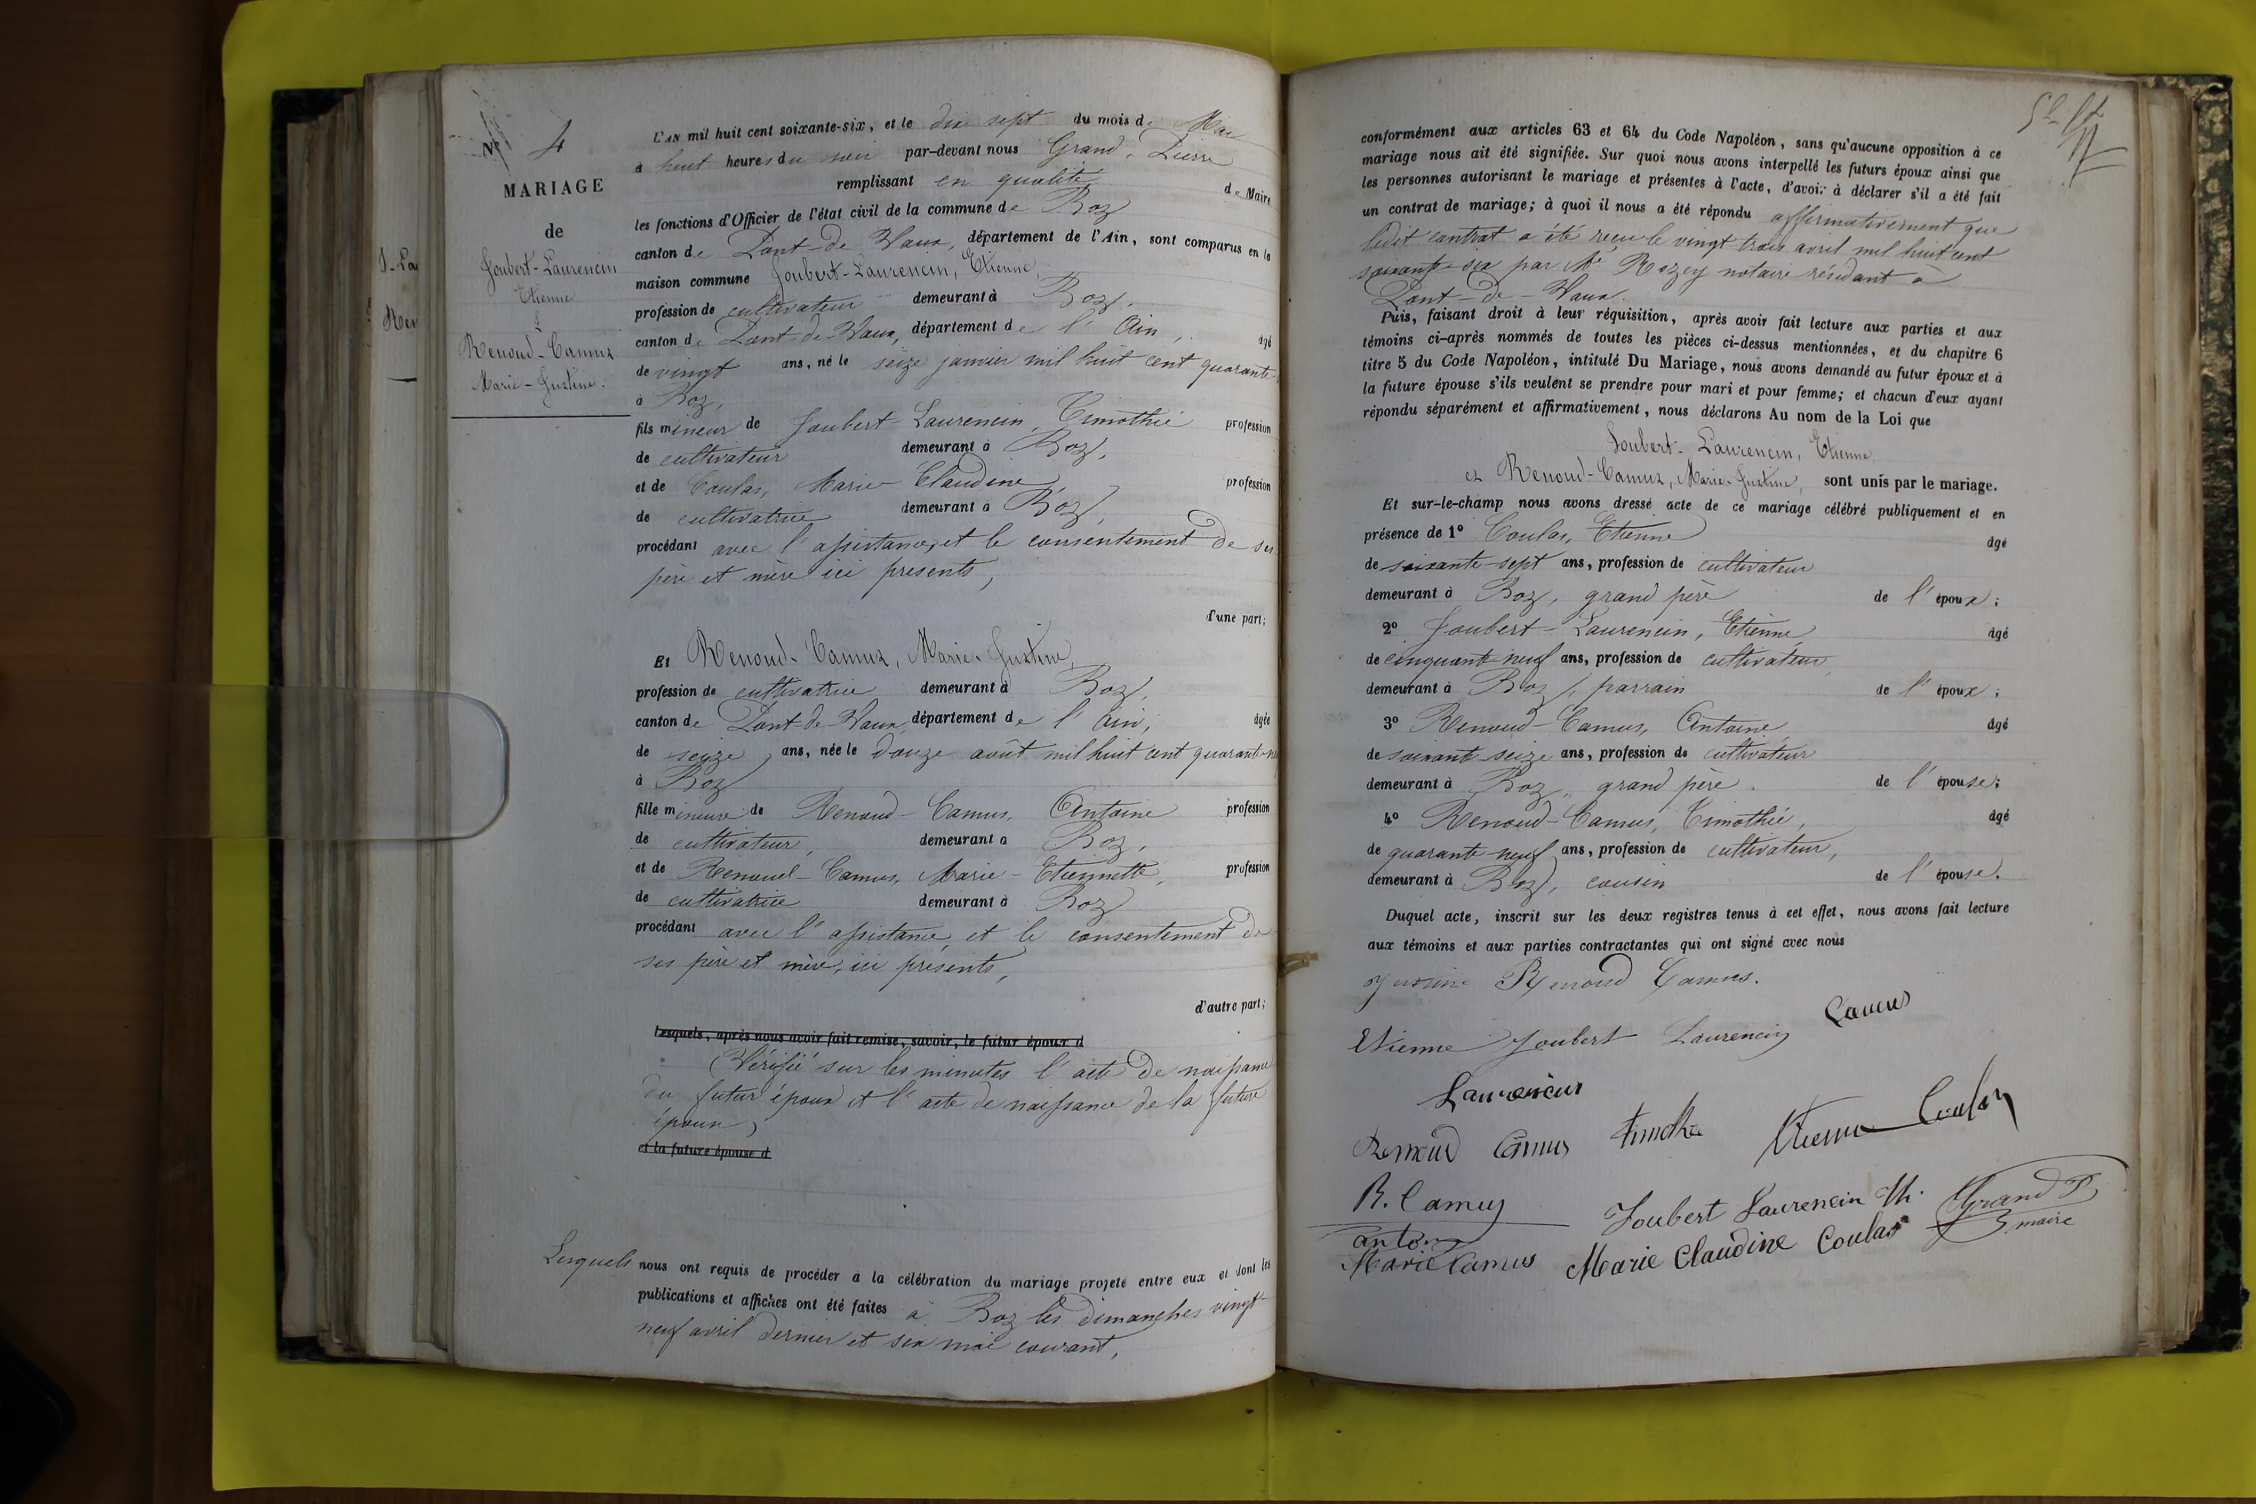 N° 4
MARIAGE
de
Joubert-Laurencin
Etienne
&
Renoud-Camus
Marie-Justine.
L'AN mil huit cent soixante-six, et le dix sept du mois de Mai
à huit heures du soir par-devant nous Grand, Pierre
remplissant en qualité de Maire
les fonctions d'Officier de l'état civil de la commune de Boz
canton de Pont-de-Vaux, département de l'Ain, sont comparus en la
maison commune Joubert-Laurencin, Etienne,
profession de cultivateur demeurant à Boz,
canton de Pont-de-Vaux, département de l'Ain, âgé
de vingt ans, né le seize janvier mil huit cent quarante
à Boz,
fils mineur de Joubert-Laurencin, Timothé profession
de cultivateur demeurant à Boz,
et de Coulas, Marie-Claudine, profession
de cultivatrice demeurant à Boz,
procédant avec l'assistance, et le consentement de ses
père et mère ici presents,
d'une part;
Et Renoud-Camus, Marie-Justine,
profession de cultivatrice demeurant à Boz,
canton de Pont-de-Vaux, département de l'Ain, âgée
de seize ans, née le douze août mil huit cent quarante-
à Boz
fille mineure de Renoud-Camus, Antoine profession
de cultivateur, demeurant à Boz,
et de Renoud-Camus, Marie-Etiennette, profession
de cultivatrice demeurant à Boz
procédant avec l'assistance, et le consentement de
ses père et mère, ici présents,
d'autre part;
Lesquels, après nous avoir fait remise, savoir, le futur époux d
Vérifié sur les minutes l'acte de naissance
du futur époux et l'acte de naissance de la future
épouse,
et la future épouse d
Lesquels nous ont requis de procéder à la célébration du mariage projeté entre eux et dont les
publications et affiches ont été faites à Boz les dimanches vingt
neuf avril dernier et six mai courant,
conformément aux articles 63 et 64 du Code Napoléon, sans qu'aucune opposition à ce
mariage nous ait été signifiée. Sur quoi nous avons interpellé les futurs époux ainsi que
les personnes autorisant le mariage et présentes à l'acte, d'avoir à déclarer s'il a été fait
un contrat de mariage; à quoi il nous a été répondu affirmativement que
ledit contrat a été reçu le vingt trois avril mil huit cent
soixante-six par Me Razey notaire résidant à
Pont-de-Vaux.
Puis, faisant droit à leur réquisition, après avoir fait lecture aux parties et aux
témoins ci-après nommés de toutes les pièces ci-dessus mentionnées, et du chapitre 6
titre 5 du Code Napoléon, intitulé Du Mariage, nous avons demandé au futur époux et à
la future épouse s'ils veulent se prendre pour mari et pour femme; et chacun d'eux ayant
répondu séparément et affirmativement, nous déclarons Au nom de la Loi que
Joubert-Laurencin, Etienne
et Renoud-Camus, Marie-Justine, sont unis par le mariage.
Et sur-le-champ nous avons dressé acte de ce mariage célébré publiquement et en
présence de 1° Coulas, Etienne âgé
de soixante-sept ans, profession de cultivateur
demeurant à Boz, grand père de l'époux;
2° Joubert-Laurencin, Etienne, âgé
de cinquante neuf ans, profession de cultivateur,
demeurant à Boz, parrain de l'époux;
3° Renoud-Camus, Antoine, âgé
de soixante-seize ans, profession de cultivateur
demeurant à Boz, grand père de l'épouse;
4° Renoud-Camus, Timothé, âgé
de quarante neuf ans, profession de cultivateur,
demeurant à Boz, cousin de l'épouse.
Duquel acte, inscrit sur les deux registres tenus à cet effet, nous avons fait lecture
aux témoins et aux parties contractantes qui ont signé avec nous
Justine Renoud Camus.
Camus
Etienne Joubert Laurencin
Laurencin
Renoud Camus Timothé Etienne Coulas
R. Camus
antoine
Joubert Laurencin Th. Grand P.
maire
Marie Camus Marie Claudine Coulas